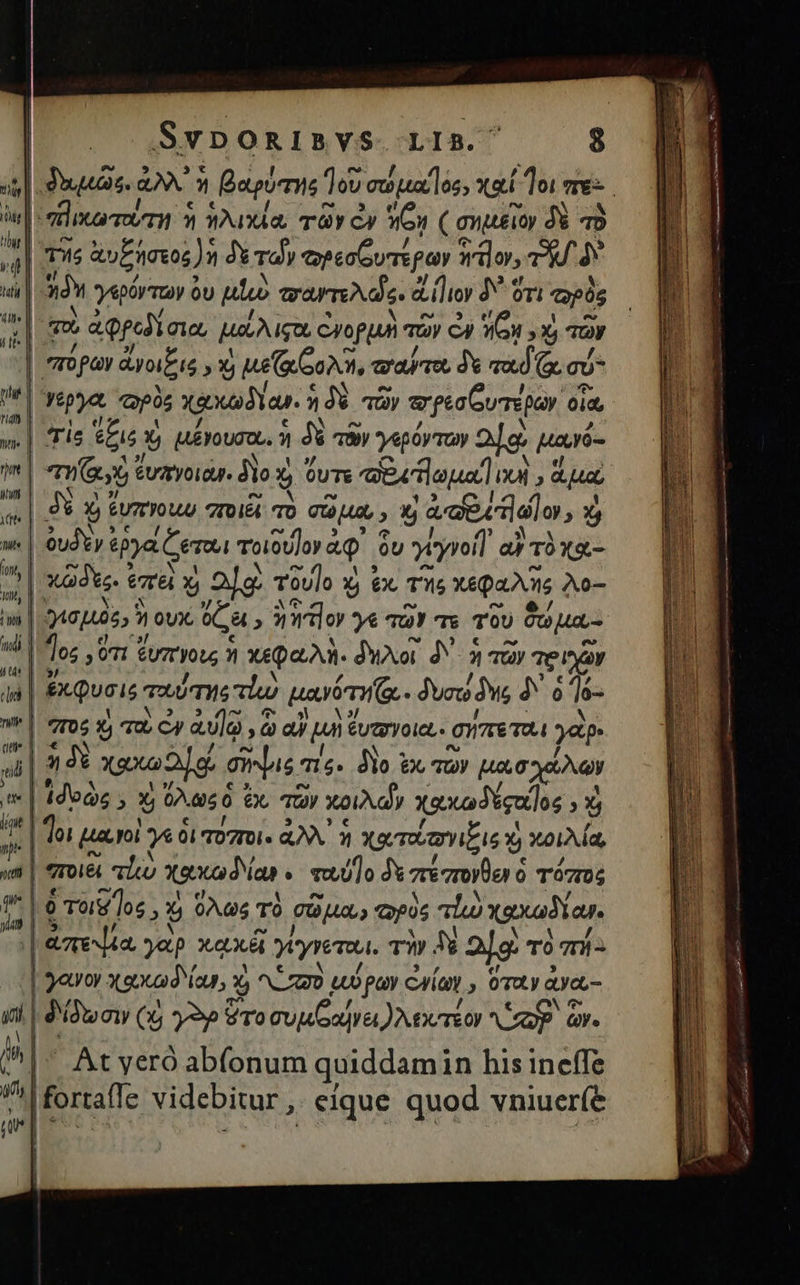 SVDORIBVS LIB. 8
δυμῶς. ἀλλ' ἡ βαρύτης τοῦ σώματος, καί τοι πε-
πλικωτάτη ἡ ἡλικία τῶν ἐν ἥβῃ (σημεῖον δὲ τὸ
τῆς αὐξήσεος) ἡ δὲ τῶν πρεσβυτέρων ἧττον, τῶν δ'
ἤδη γερόντων οὐ μὴν παντελῶς. αἴτιον δ' ὅτι πρὸς
τὰ ἀφροδίσια μάλιστα ἐνορμὴ τῶν ἐν ἥβῃ, καὶ τῶν
πόρων ἄνοιξις, καὶ μεταβολὴ, πάντα δὲ ταῦτα σύ-
νεργα πρὸς κακωδίαν. ἡ δὲ τῶν πρεσβυτέρων οἷα
τὶς ἕξις καὶ μένουσα. ἡ δὲ τῶν γερόντων διὰ μανό-
τητα, καὶ εὔπνοιαν. διὸ καὶ οὔτε περιττωματικὴ, ἅμα
δὲ καὶ εὔπνουν ποιεῖ τὸ σῶμα, καὶ ἀπερίττωτον, καὶ
οὐδὲν ἐργάζεται τοιοῦτον ἀφ' οὗ γίγνοιτ' ἂν τὸ κα-
κῶδες. ἐπεὶ καὶ διὰ τοῦτο καὶ ἐκ τῆς κεφαλῆς λο-
γισμὸς, ἢ οὐκ ὄζει, ἢ ἧττον γε τῶν τε τοῦ σώμα-
τος, ὅτι εὔπνους ἡ κεφαλὴ. δηλοῖ δ' ἡ τῶν τριχῶν
ἔκφυσις ταύτης τὴν μανότητα. δυσώδης δ' ὁ τό-
πος καὶ τὰ ἐν αὐτῷ, ᾧ ἂν μὴ εὔπνοια. σήπεται γάρ.
ἡ δὲ κακωδία σῆψις τίς. διὸ ἐκ τῶν μασχάλων
ἱδρὼς, καὶ ὅλως ὁ ἐκ τῶν κοιλῶν κακωδέστατος, καὶ
τοι μανοὶ γε οἱ τόποι. ἀλλ' ἡ κατάπνιξις καὶ κοιλία
ποιεῖ τὴν κακωδίαν. ταύτο δὲ πέπονθεν ὁ τόπος
ὁ τοιοῦτος, καὶ ὅλως τὸ σῶμα, πρὸς τὴν κακωδίαν.
ἀπεψία γὰρ κακεῖ γίγνεται. τὴν δὲ διὰ τὸ πή-
γανον κακωδίαν, καὶ ὑπὸ μύρων ἐνίων, ὅταν ἀνα-
δίδωσιν (καὶ γὰρ οὕτο συμβαίνει) λεκτέον ὑπὲρ ὧν.
At verò abſonum quiddam in his ineſſe
fortaſſe videbitur, eíque quod vniuerſè